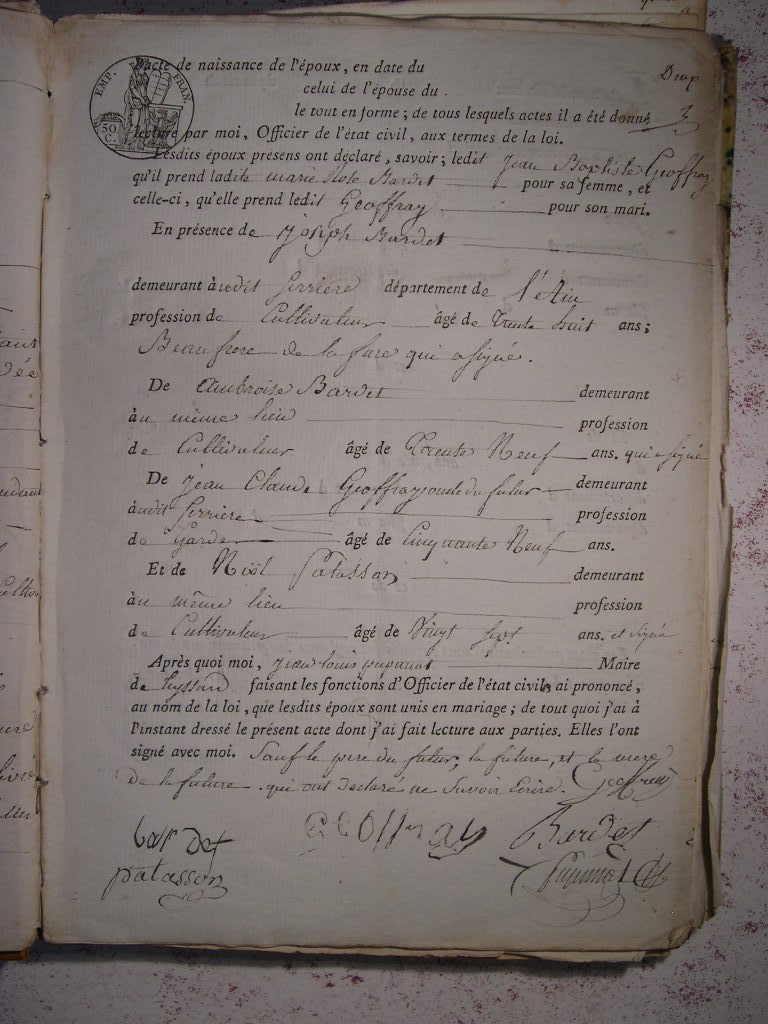 EMP. FRAN.
50 C.
l'acte de naissance de l'époux, en date du
celui de l'épouse du
le tout en forme ; de tous lesquels actes il a été donné
lecture par moi, Officier de l'état civil, aux termes de la loi.
Lesdits époux présens ont déclaré, savoir ; ledit Jean Baptiste Geoffray
qu'il prend ladite marie Rose Bardet pour sa femme, et
celle-ci, qu'elle prend ledit Geoffray pour son mari.
En présence de Joseph Bardet
demeurant audit Serriere département de l'Ain
profession de Cultivateur âgé de trente huit ans ;
Beaufrere de la qui a signé.
De Ambroise Bardet demeurant
au même lieu profession
de Cultivateur âgé de Trente Neuf ans. qui a signé
De Jean Claude Geoffray oncle du futur demeurant
audit Serriere profession
de Garde âgé de Cinquante Neuf ans.
Et de Noël Patasson demeurant
au même lieu profession
de Cultivateur âgé de Vingt Sept ans. et signé
Après quoi moi, jean louis pupunat Maire
de leyssard faisant les fonctions d'Officier de l'état civil, ai prononcé,
au nom de la loi, que lesdits époux sont unis en mariage ; de tout quoi j'ai à
l'instant dressé le présent acte dont j'ai fait lecture aux parties. Elles l'ont
signé avec moi. Sauf le pere du futur, la future, et la mere
de la future qui ont declaré ne Savoir Ecrire. Geoffray
bardet Geoffray Bardet
patasson Pupunat